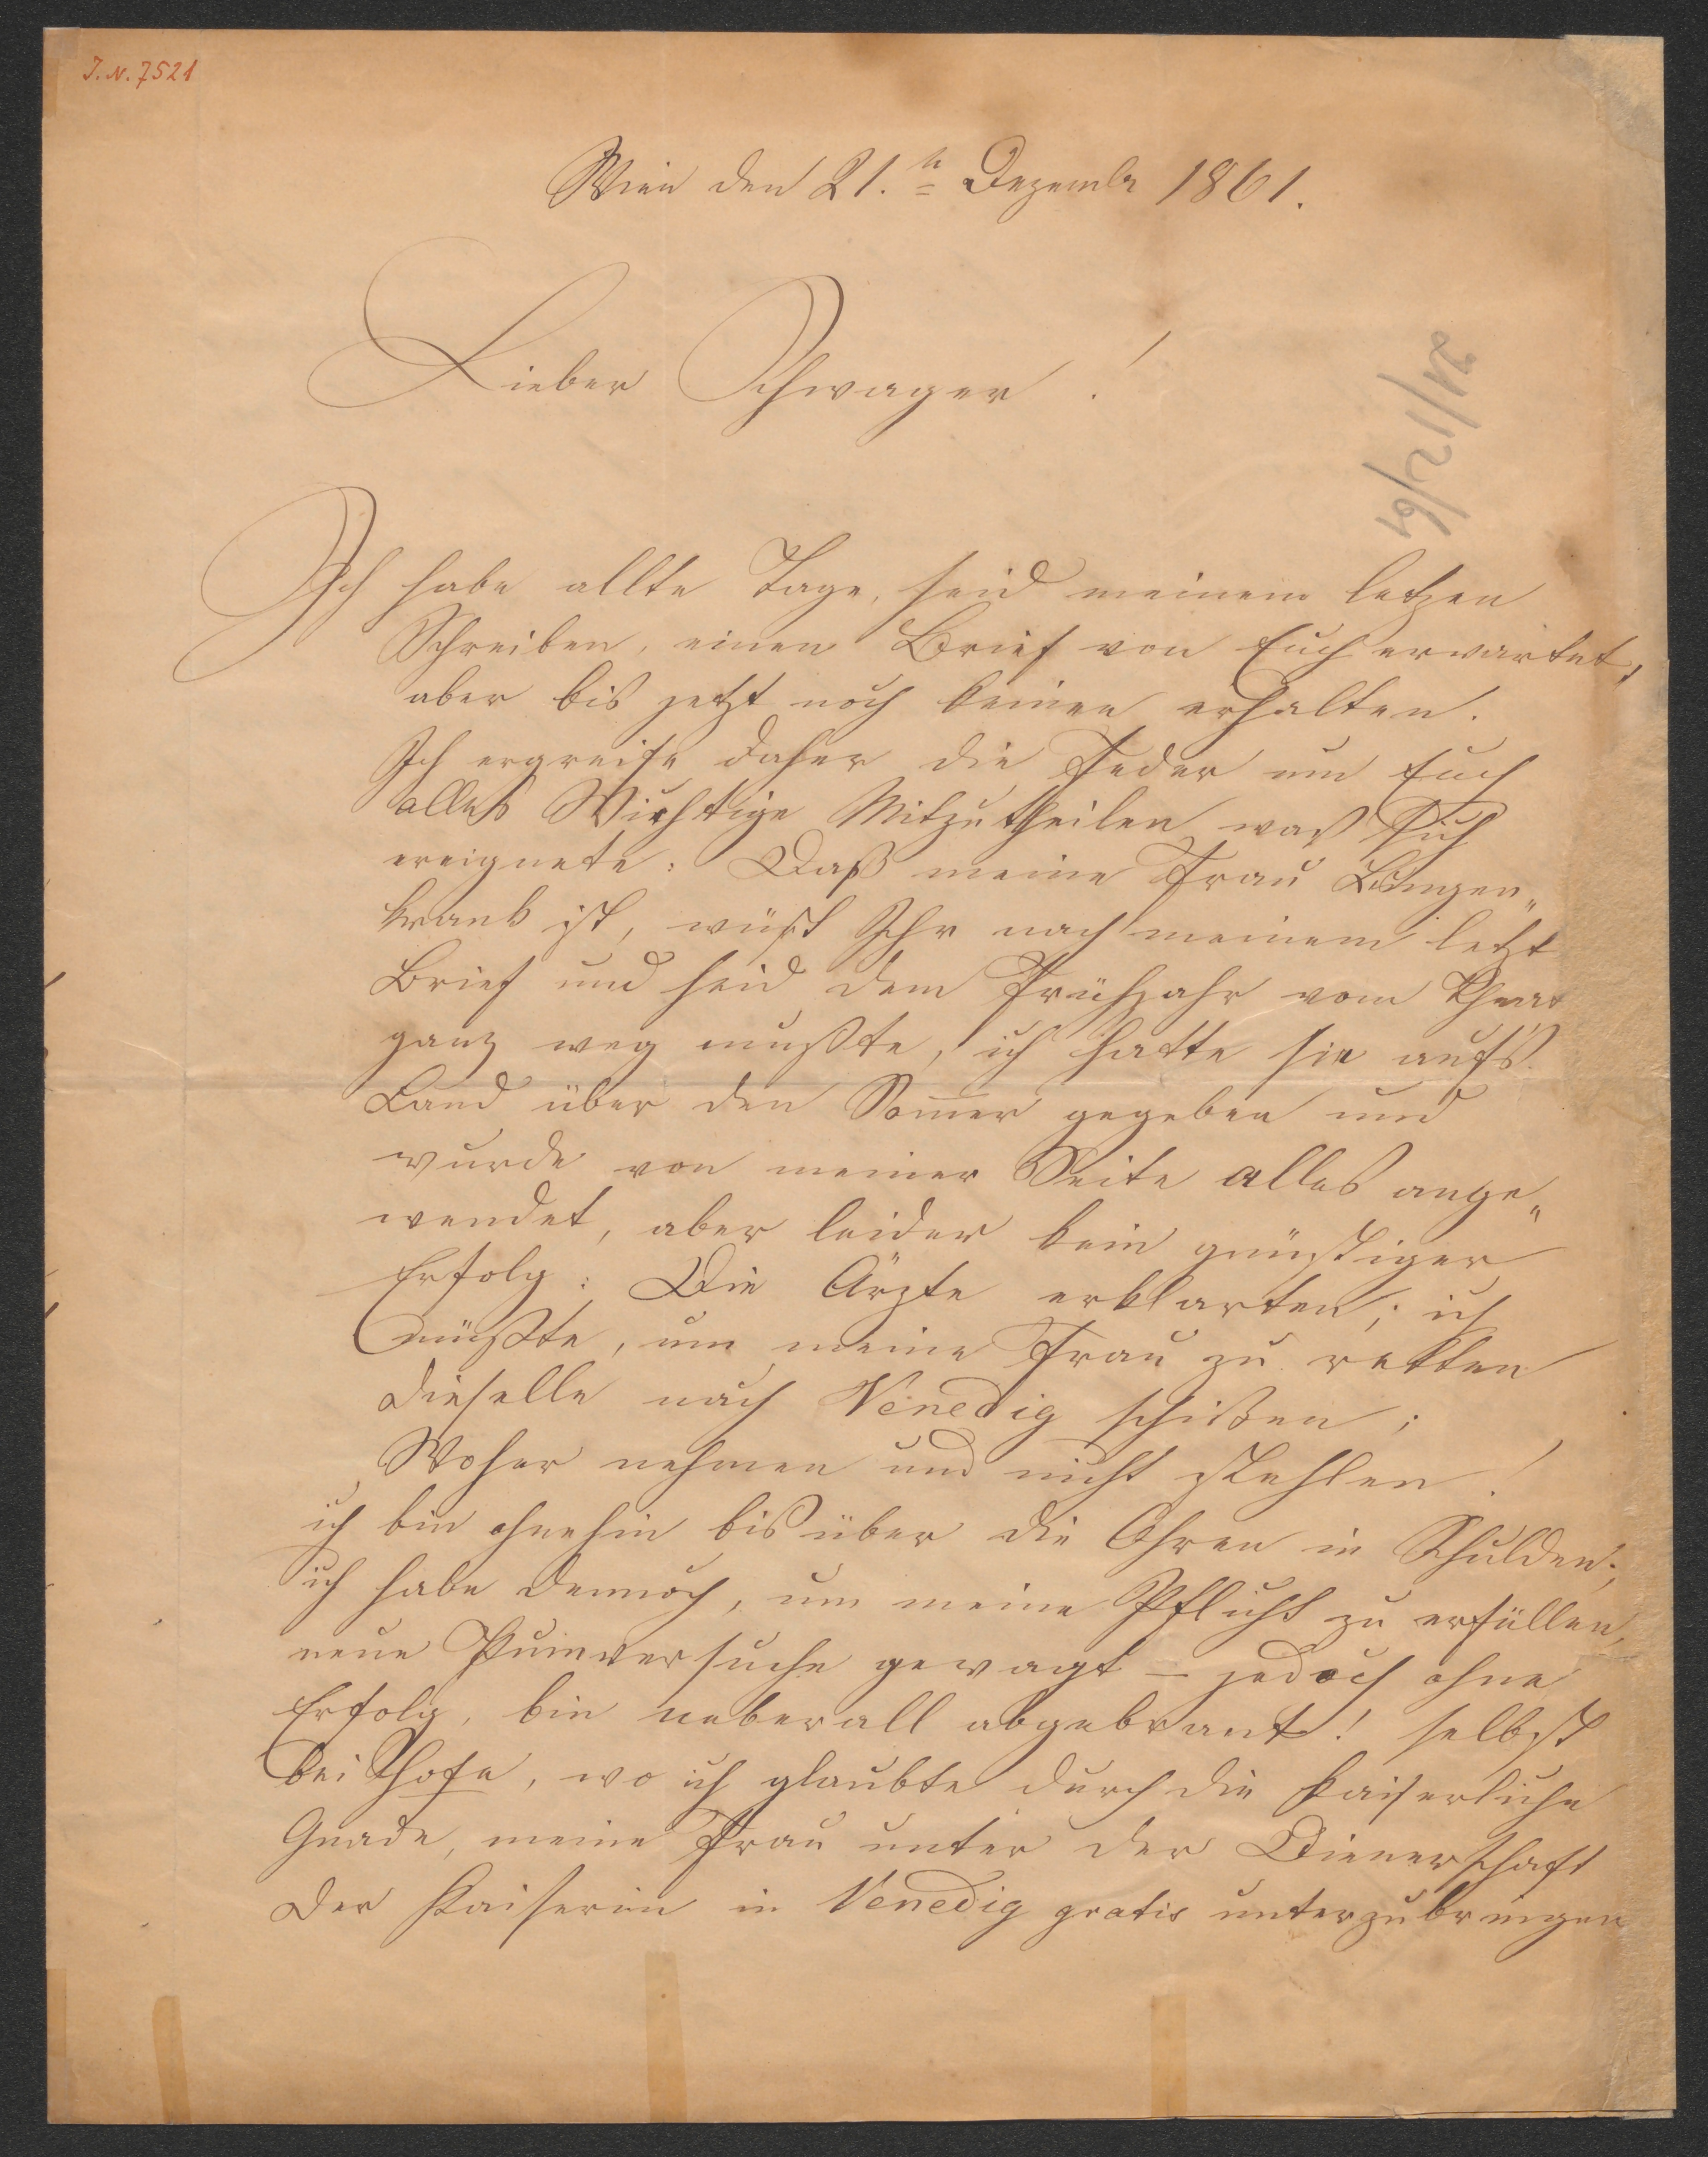 J. N. 7521
Wien den 21.tn Dezember 1861.
Lieber Schwager!
21/12/61
Ich habe allte Tage, seid meinem letzen
Schreiben, einen Brief von Euch erwartet,
aber bis jetzt noch keinen erhalten.
Ich ergreife daher die Feder um Euch
alles Wichtige Mitzutheilen was sich
ereignete: Daß meine Frau Lungen„
krank ist, wüßt Ihr nach meinem letzt
Brief und seid dem Frühjahr vom Theat
ganz weg mußte, ich hatte sie auf's
Land über den Som̅er gegeben und
wurde von meiner Seite alles ange„
wendet, aber leider kein günstiger
Erfolg: Die Ärzte erklarten; ich
müßte, um meine Frau zu retten
dieselle nach Venedig schicken;
Woher nehmen und nicht stehlen!
ich bin ohnehin bis über die Ohren in Schulden;
ich habe dennoch, um meine Pflicht zu erfüllen,
neue Pumversuche gewagt – jedoch ohne
Erfolg, bin ueberall abgebrant! selbst
bei Hofe, wo ich glaubte durch die kaiserliche
Gnade, meine Frau unter der Dienerschaft
der Kaiserin in Venedig gratis unterzubringen